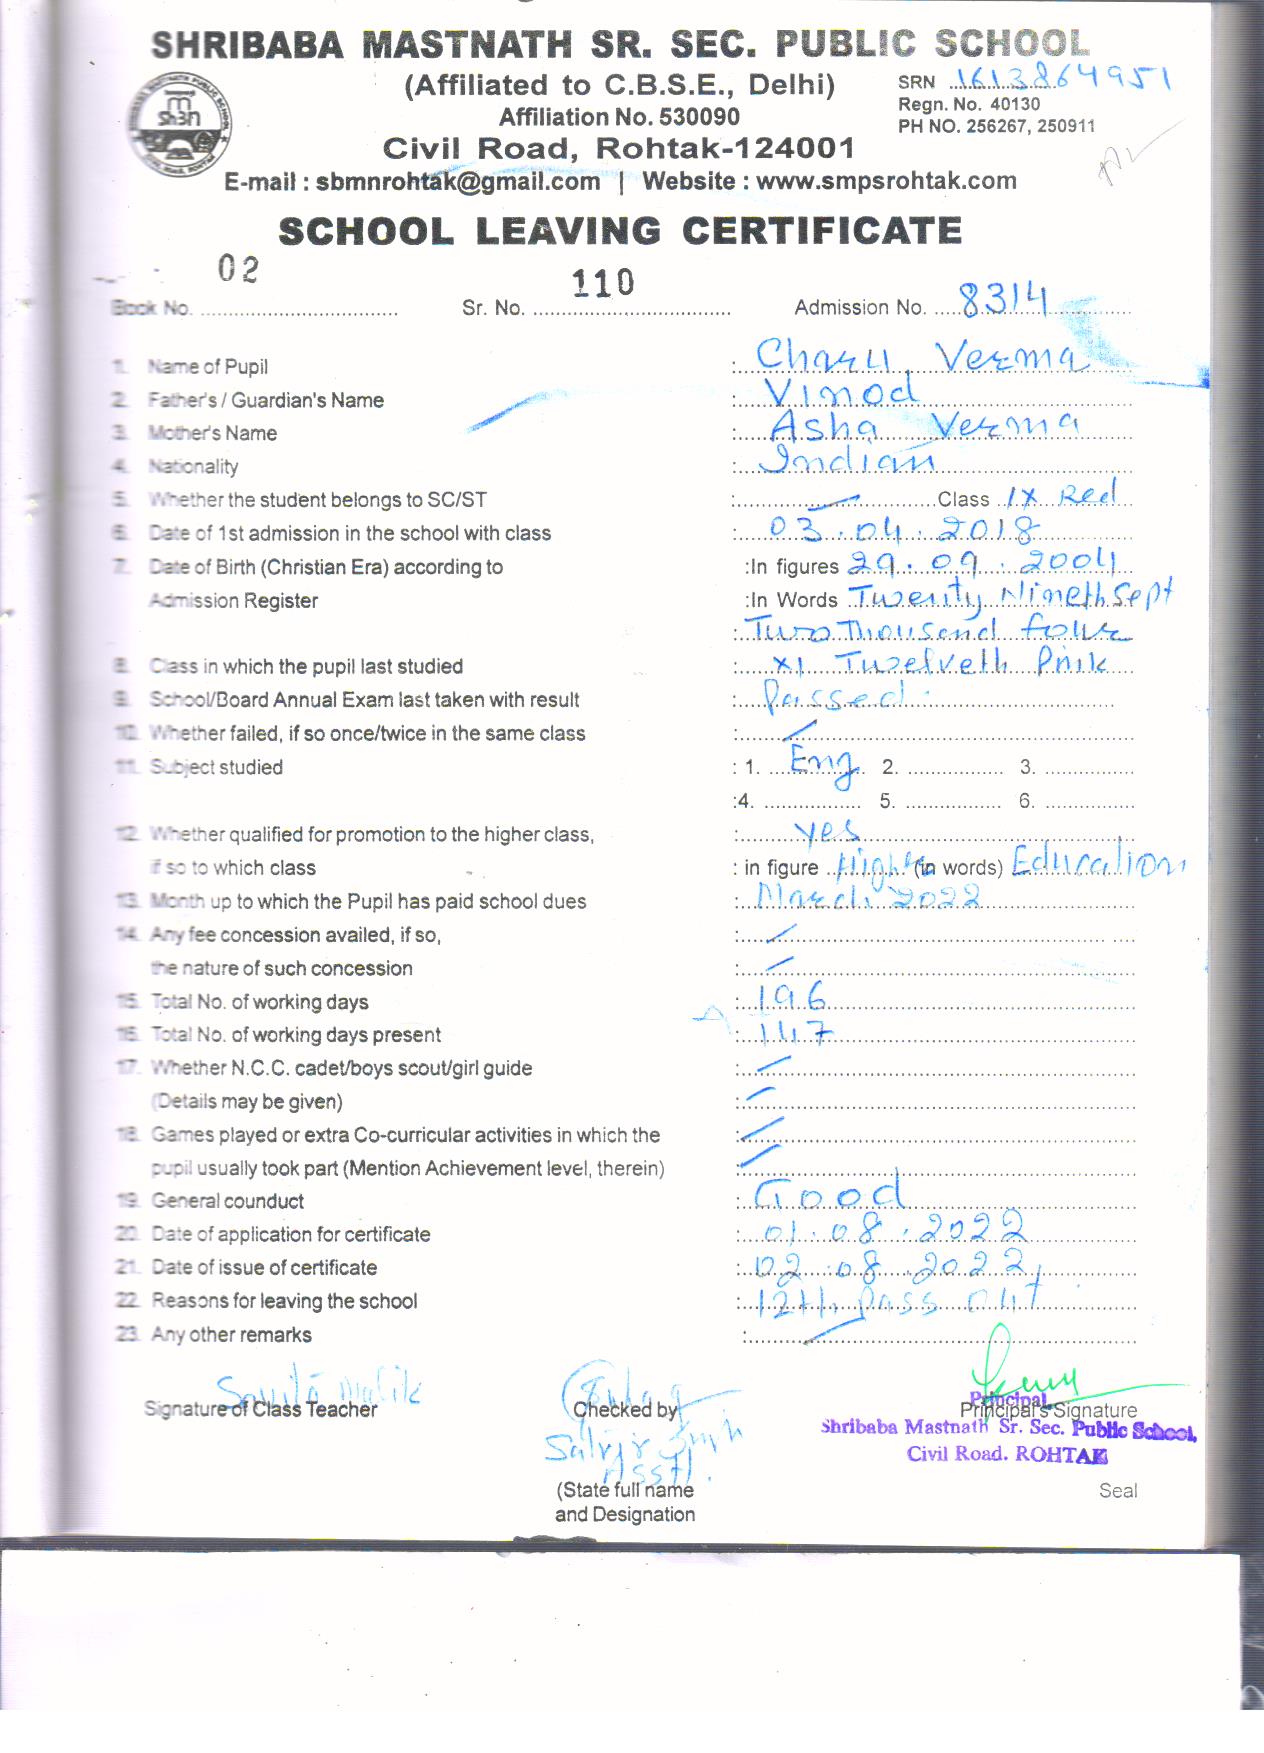 SHRIBABA MASTNATH SR. SEC. PUBLIC SCHOOL
(Affiliated to C.B.S.E., Delhi)
SRN 1613864951
Affiliation No. 530090
Regn. No. 40130
PH NO. 256267, 250911
Civil Road, Rohtak-124001
E-mail : sbmnrohtak@gmail.com | Website : www.smpsrohtak.com
SCHOOL LEAVING CERTIFICATE
Book No. 02 Sr. No. 110 Admission No. 8314
1. Name of Pupil : Charu Verma
2. Father's / Guardian's Name : Vinod
3. Mother's Name : Asha Verma
4. Nationality : Indian
5. Whether the student belongs to SC/ST : — Class IX Red
6. Date of 1st admission in the school with class : 03.04.2018
7. Date of Birth (Christian Era) according to :In figures 29.09.2004
Admission Register :In Words Twenty Nineth Sept
: Two Thousand four
8. Class in which the pupil last studied : XI Twelveth Pink
9. School/Board Annual Exam last taken with result : Passed
10. Whether failed, if so once/twice in the same class : —
11. Subject studied : 1. Eng 2. 3.
:4. 5. 6.
12. Whether qualified for promotion to the higher class, : yes
if so to which class : in figure High (in words) Education
13. Month up to which the Pupil has paid school dues : March, 2022
14. Any fee concession availed, if so, : —
the nature of such concession : —
15. Total No. of working days : 196
16. Total No. of working days present : 147
17. Whether N.C.C. cadet/boys scout/girl guide : —
(Details may be given) : —
18. Games played or extra Co-curricular activities in which the : —
pupil usually took part (Mention Achievement level, therein) : —
19. General counduct : Good
20. Date of application for certificate : 01.08.2022
21. Date of issue of certificate : 02.08.2022
22. Reasons for leaving the school : 12th pass out
23. Any other remarks : —
Signature of Class Teacher Checked by Principal's Signature
Principal
Shribaba Mastnath Sr. Sec. Public School,
Civil Road. ROHTAK
(State full name Seal
and Designation